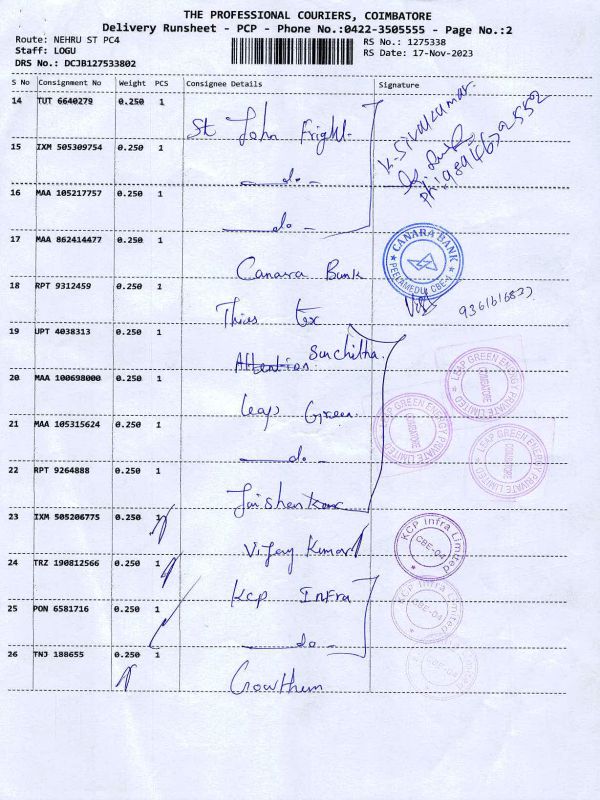 THE PROFESSIONAL COURIERS, COIMBATORE
Delivery Runsheet - PCP - Phone No.:0422-3505555 - Page No.:2
Route: NEHRU ST PC4
RS No.: 1275338
Staff: LOGU
RS Date: 17-Nov-2023
DRS No.: DCJB127533802
S No Consignment No Weight PCS Consignee Details Signature
14 TUT 6640279 0.250 1 St John Fright
K. Sivakumar
Ph: 9894672552
15 IXM 505309754 0.250 1 —do—
16 MAA 105217757 0.250 1 —do—
17 MAA 862414477 0.250 1 Canara Bank
CANARA BANK
PEELAMEDU, CBE-4
18 RPT 9312459 0.250 1 tex
19 UPT 4038313 0.250 1 Attention Suchitha
20 MAA 100698000 0.250 1 Leap Green
LEAP GREEN ENERGY PRIVATE LIMITED
COIMBATORE
LEAP GREEN ENERGY PRIVATE LIMITED
COIMBATORE
LEAP GREEN ENERGY PRIVATE LIMITED
COIMBATORE
21 MAA 105315624 0.250 1 —do—
22 RPT 9264888 0.250 1 Jaishankar
23 IXM 505206775 0.250 1 Vijay Kumar
KCP Infra Limited
CBE-04
24 TRZ 190812566 0.250 1 KCP Infra
KCP Infra Limited
CBE-04
25 PON 6581716 0.250 1 —do—
26 TNJ 188655 0.250 1 Growthum